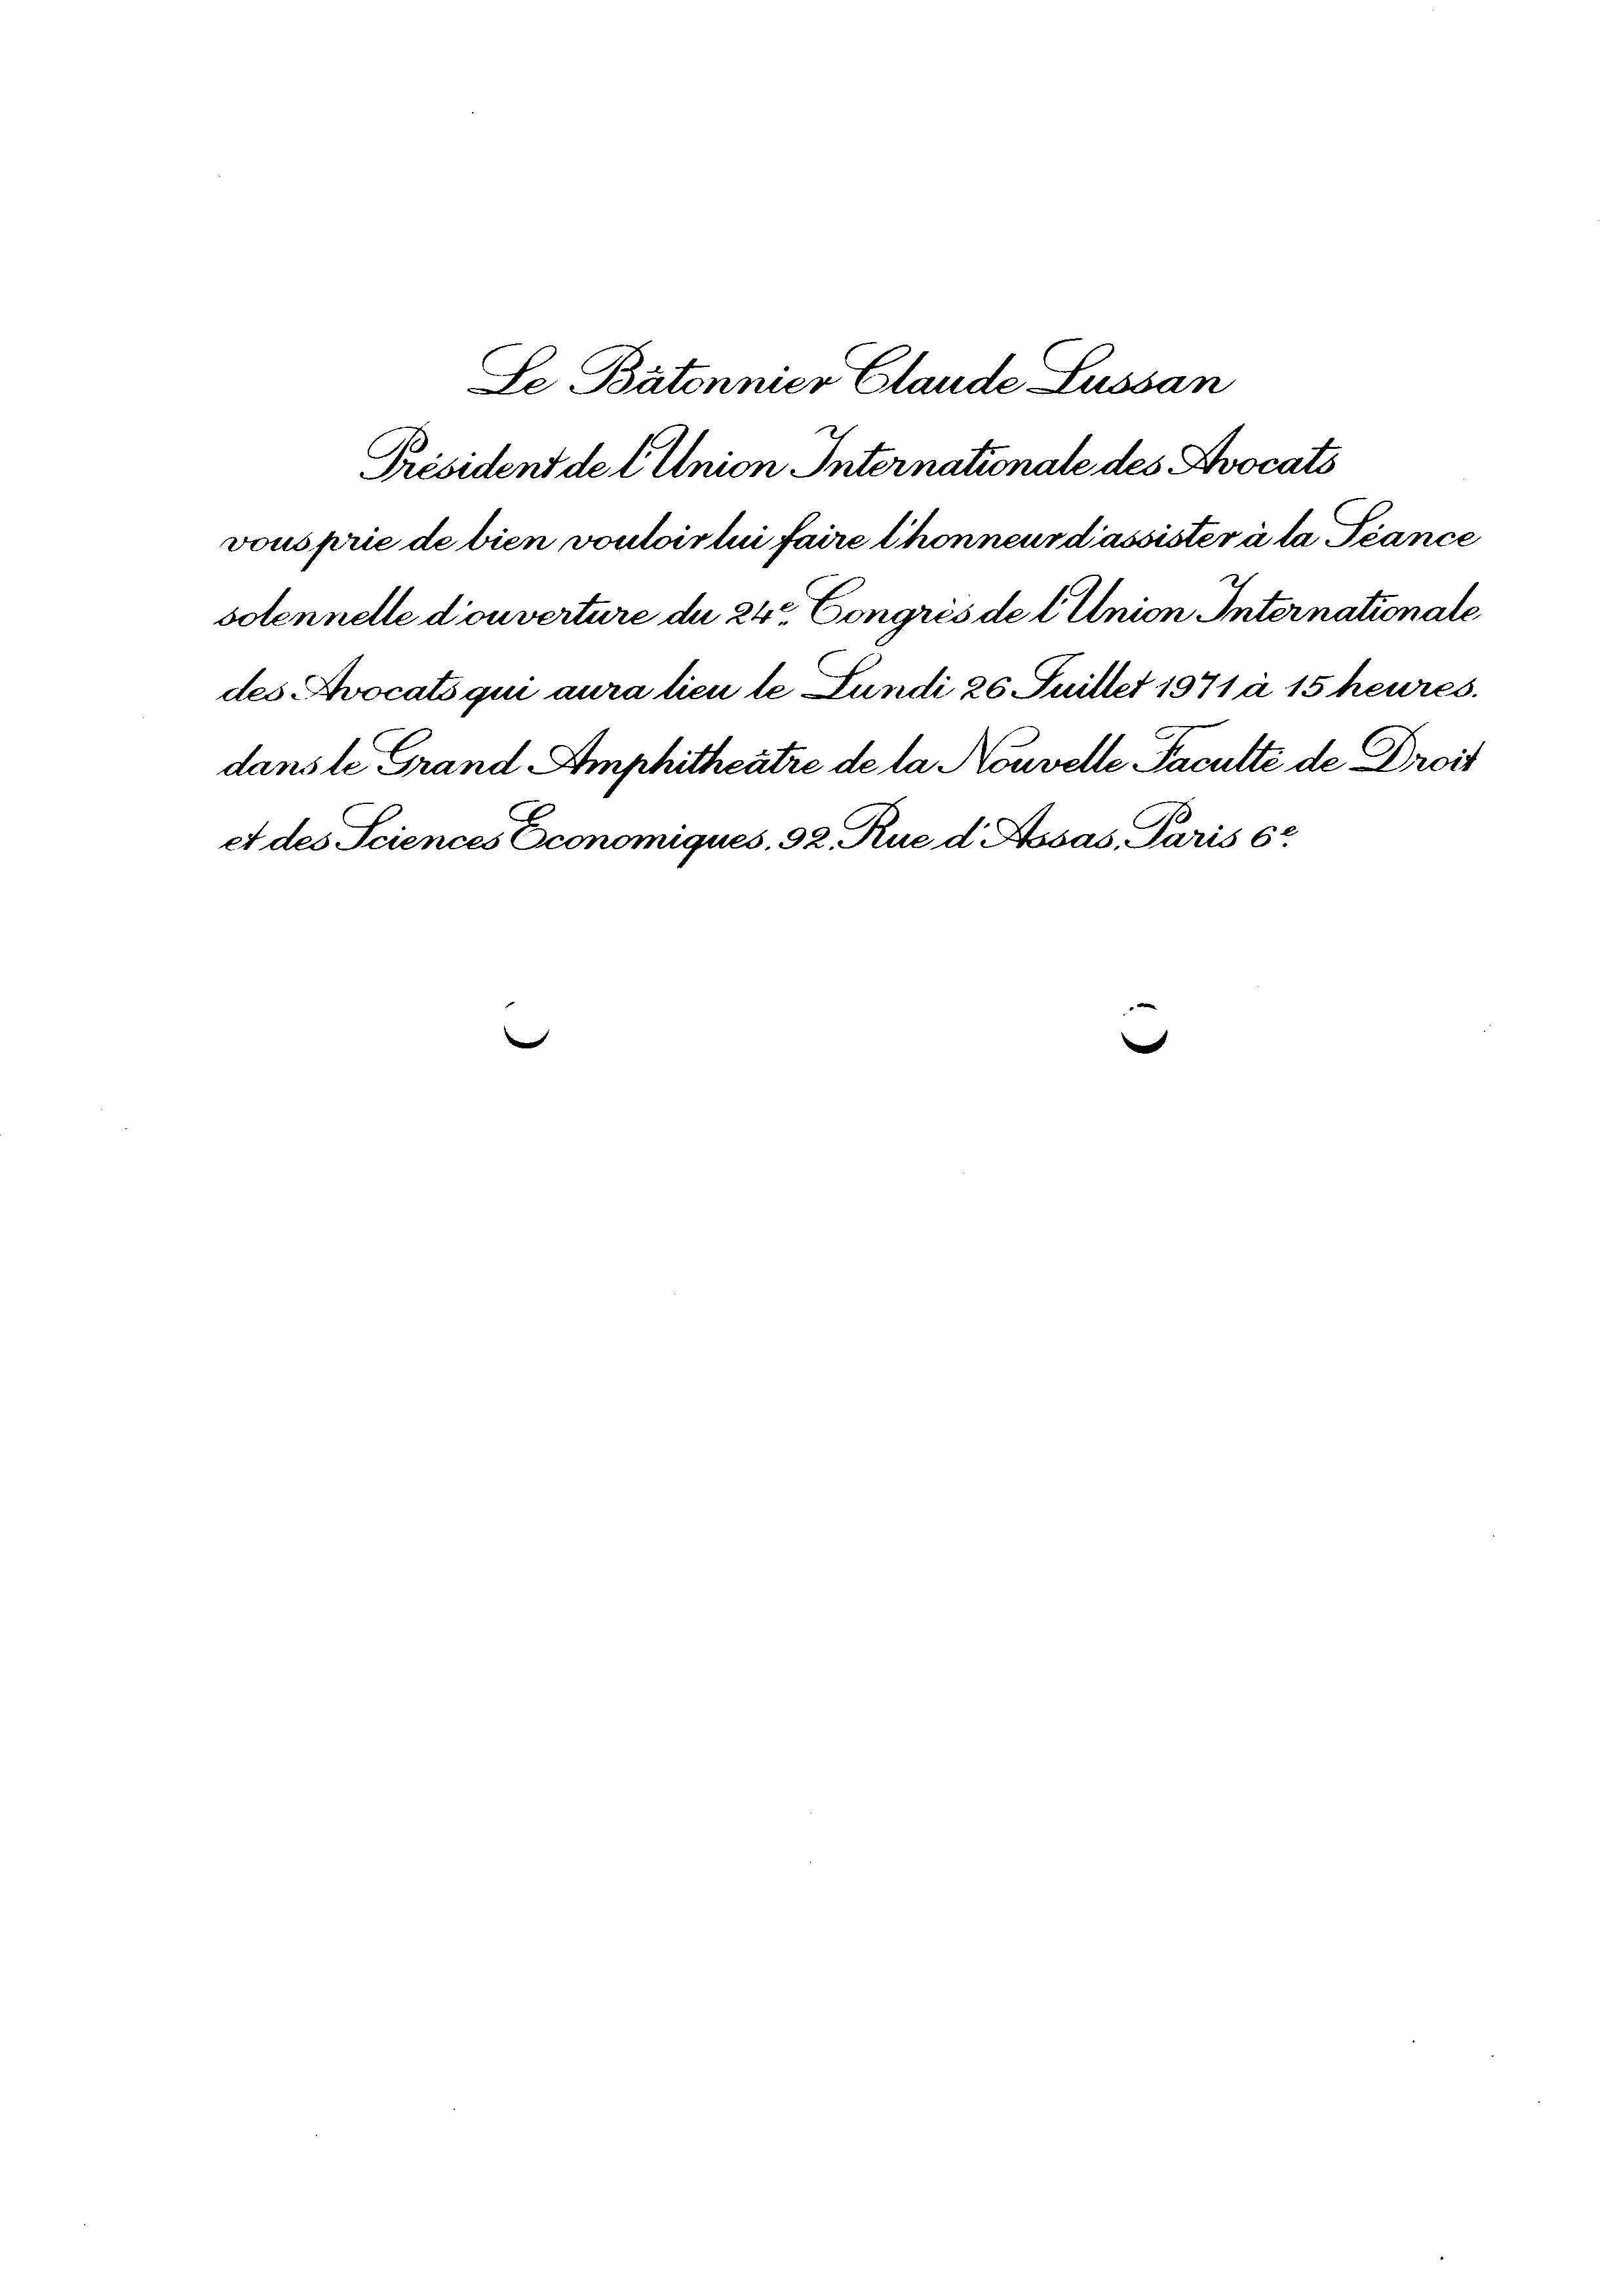 Le Bâtonnier Claude Lussan
Président de l'Union Internationale des Avocats
vous prie de bien vouloir lui faire l'honneur d'assister à la Séance
solennelle d'ouverture du 24e Congrès de l'Union Internationale
des Avocats qui aura lieu le Lundi 26 Juillet 1971 à 15 heures.
dans le Grand Amphithéâtre de la Nouvelle Faculté de Droit
et des Sciences Economiques. 92. Rue d'Assas. Paris 6e